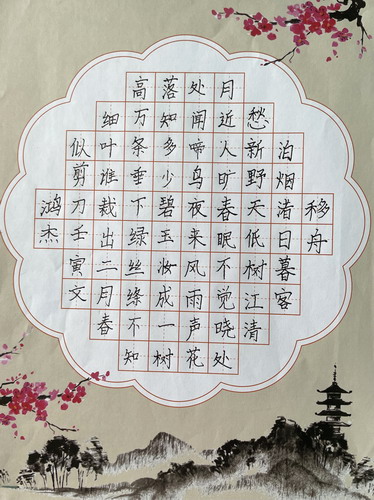 移舟
泊烟渚日暮客
愁新野天低树江清
月近人旷春眠不觉晓处
处闻啼鸟夜来风雨声花
落知多少碧玉妆成一树
高万条垂下绿丝绦不知
细叶谁裁出二月春
似剪刀壬寅文
鸿杰